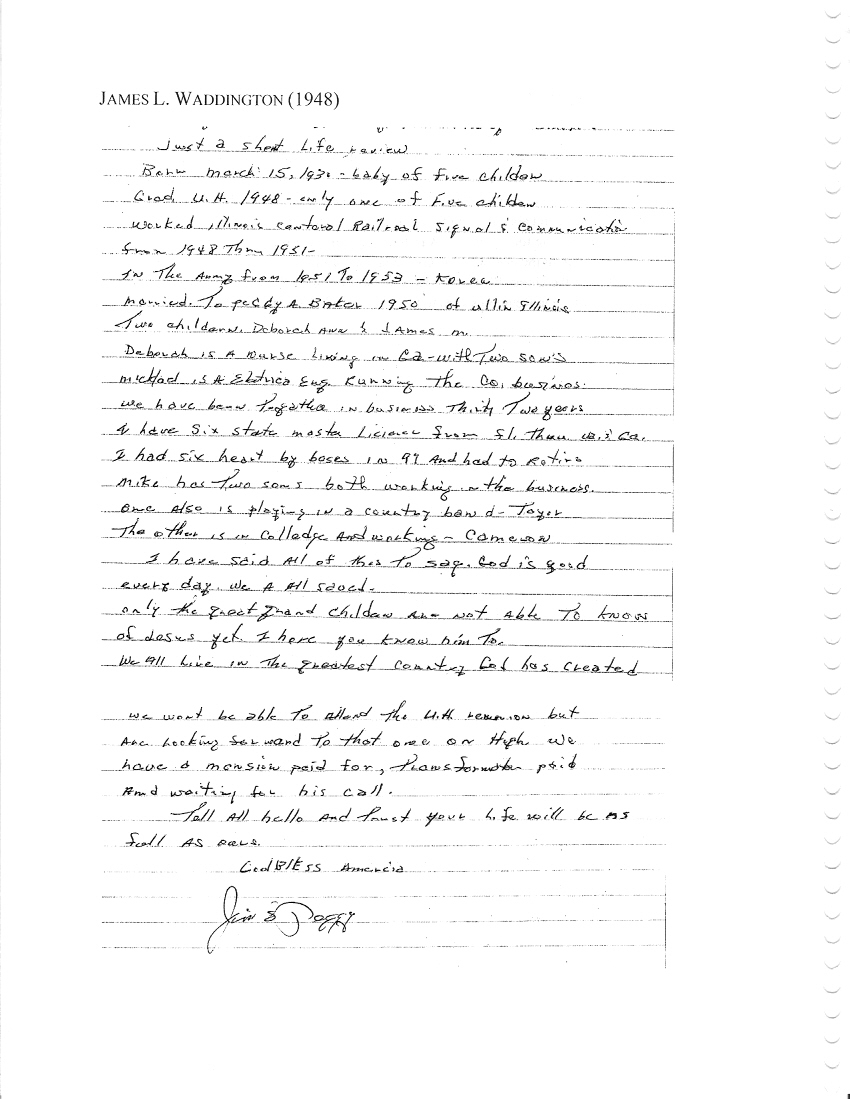 JAMES L. WADDINGTON (1948)
Just a short Life review
Born march 15, 1930 - baby of five childen
Grad. U.H. 1948 - only one of Five childen
worked, Illinois centeral Railroad Signal & Communicatin
from 1948 Thru 1951 -
In The Army from 1951 To 1953 - Korea
married. To peggy A Baker 1950 of ullin Illinois
Two childern. Deborah Ann & James m.
Deborah is A Nurse Living in Ca - with Two son's
michael is A Eletrica Eng. Running The Co. business.
we have been togather in business Thirty Two years
& have Six state master Licience from Fl. Thru Ca.
I had six heart by passes in 91 And had to Retire
Mike has Two sons both working in the business.
one Also is playing in a country band -
The other is in Colledge And working - Cameron
I have said All of this To say. God is good
every day. we A All saved.
only the great grand childen Are not Able To know
of Jesus yet. I hope you know him To.
We All Live in The greatest country God has created
we wont be able To attend the U.H reunion but
Are Looking forward To that one on High we
have a mension paid for, paid
And waiting for his call.
Tell All hello And trust your Life will be As
full As ours.
God BlEss Amercia
Jim & Peggy